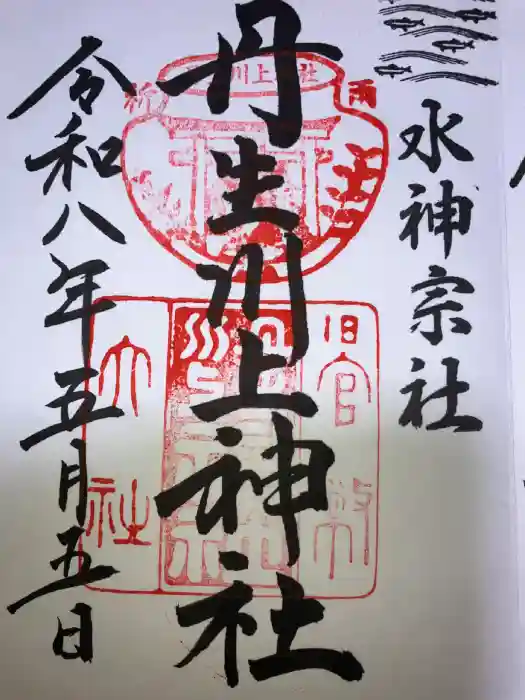 水神宗社
丹生川上神社
令和八年五月五日
川上
社
祈
雨
旧官幣
大社